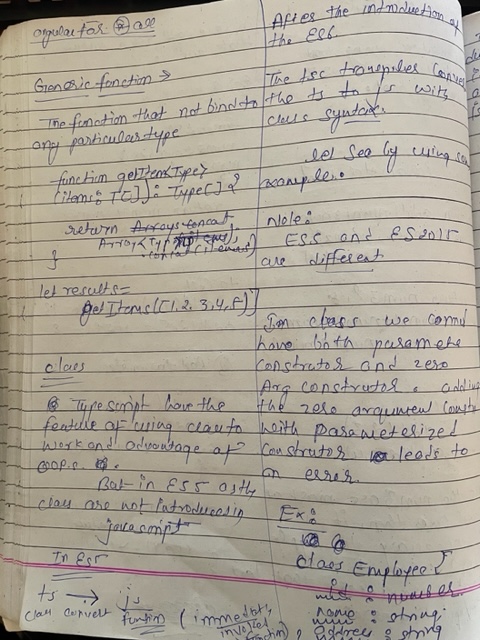 angular for all
Generic function →
The function that not bind to
any particular type
function getItem<Type>
(items: T[]): Type[] {
return Arrays.concat
Array<Type>
.concat(items)
}
let results =
getItems([1,2,3,4,5])
class
Typescript have the
feature of using class to
work and advantage of
OOPS.
But in ES5 as the
class are not introduced in
javascript
In ES5
ts → js
class convert function (immediat,
invoked
function)
After the introduction of
the ES6.
The tsc transpiles
the ts to js with
class syntax.
let See by using
example.
Note:
ES5 and ES2015
are different
In class we cannot
have both paramete
construtor and zero
Arg construtor.
the zero argument
with parameterized
construtor leads to
an error.
Ex:
class Employee {
: number.
name : string.
: string